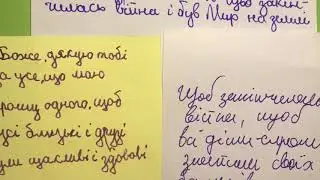 чилась війна і був Мир на землі
Боже, дякую тобі
за усе, що маю
прошу одного, щоб
усі близькі і друзі
були щасливі і здорові
Щоб закінчилась
війна, щоб
всі діти-сироти
знайшли своїх